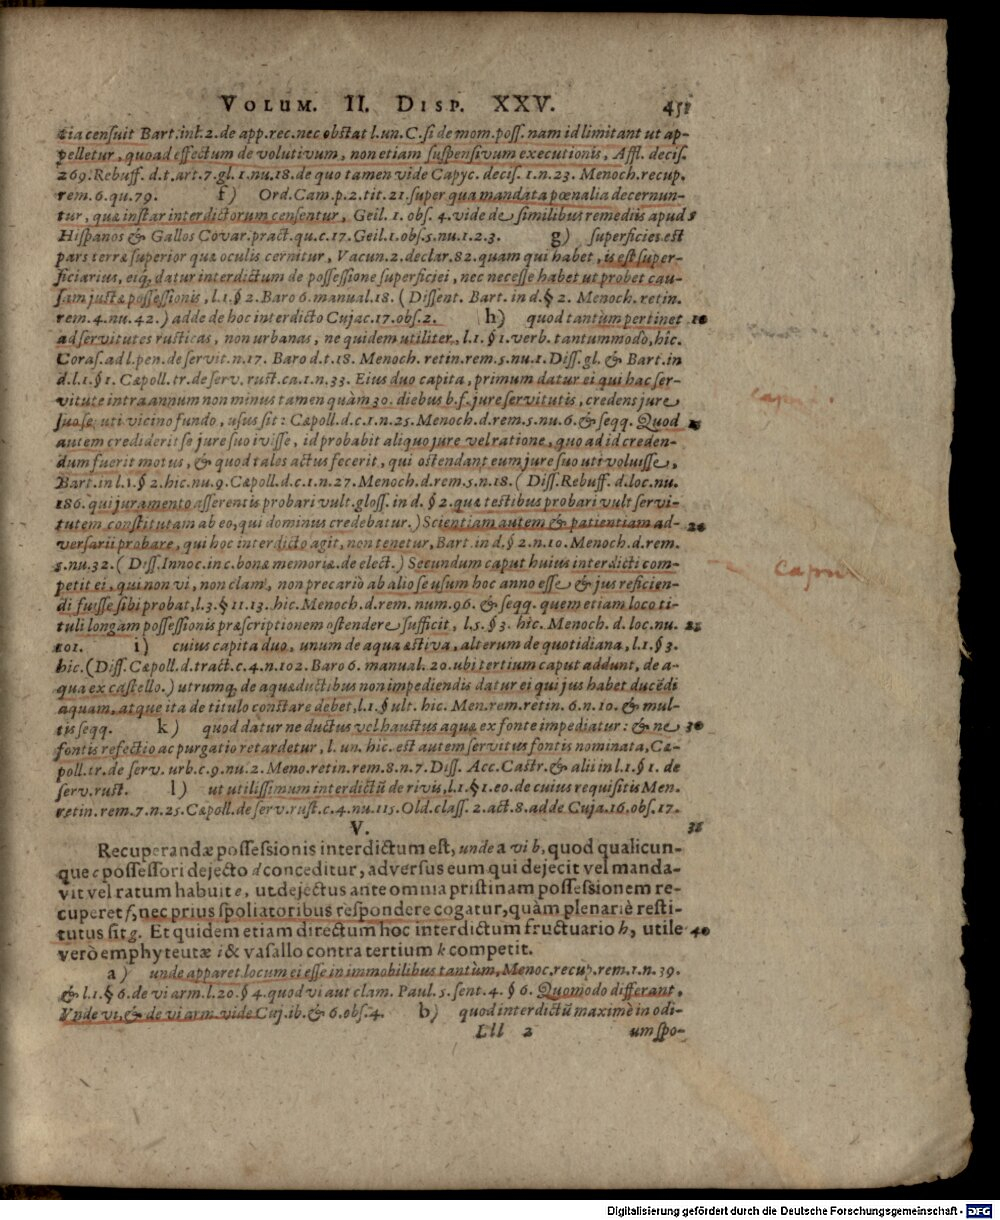 VOLUM. II. DISP. XXV. 451
tia censuit Bart. in l. 2. de app. rec. nec obstat l. un. C. si de mom. poss. nam id limitant ut ap-
pelletur, quoad effectum devolutivum, non etiam suspensivum executionis, Affl. decis.
269. Rebuff. d. t. art. 7. gl. 1. nu. 18. de quo tamen vide Capyc. decis. 1. n. 23. Menoch. recup.
rem. 6. qu. 79. f) Ord. Cam. p. 2. tit. 21. super qua mandata pœnalia decernun-
tur, quæ instar interdictorum censentur, Geil. 1. obs. 4. vide de similibus remediis apud 5
Hispanos & Gallos Covar. pract. qu. c. 17. Geil. 1. obs. 5. nu. 1. 2. 3. g) superficies est
pars terræ superior quæ oculis cernitur, Vacun. 2. declar. 82. quam qui habet, is est super-
ficiarius, eiq; datur interdictum de possessione superficiei, nec necesse habet ut probet cau-
sam justæ possessionis, l. 1. § 2. Baro 6. manual. 18. (Dissent. Bart. in d. § 2. Menoch. retin.
rem. 4. nu. 42.) adde de hoc interdicto Cujac. 17. obs. 2. h) quod tantùm pertinet 10
ad servitutes rusticas, non urbanas, ne quidem utiliter, l. 1. § 1. verb. tantummodò, hic.
Coras. ad l. pen. de servit. n. 17. Baro d. t. 18. Menoch. retin. rem. 5. nu. 1. Diss. gl. & Bart. in
d. l. 1. § 1. Cæpoll. tr. de serv. rust. ca. 1. n. 33. Eius duo capita, primum datur ei qui hac ser-
vitute intra annum non minus tamen quàm 30. diebus b. f. jure servitutis, credens jure
suo se uti vicino fundo, usus sit: Cæpoll. d. c. 1. n. 25. Menoch. d. rem. 5. nu. 6. & seqq. Quod 15
autem crediderit se jure suo ivisse, id probabit aliquo jure vel ratione, quo ad id creden-
dum fuerit motus, & quod tales actus fecerit, qui ostendant eum jure suo uti voluisse,
Bart. in l. 1. § 2. hic. nu. 9. Cæpoll. d. c. 1. n. 27. Menoch. d. rem. 5. n. 18. (Diss. Rebuff. d. loc. nu.
186. qui juramento asserentis probari vult. gloss. in d. § 2. quæ testibus probari vult servi-
tutem constitutam ab eo, qui dominus credebatur.) Scientiam autem & patientiam ad- 20
versarii probare, qui hoc interdicto agit, non tenetur, Bart. in d. § 2. n. 10. Menoch. d. rem.
5. nu. 32. (Diss. Innoc. in c. bonæ memoriæ. de elect.) Secundum caput huius interdicti com-
petit ei, qui non vi, non clam, non precariò ab alio se usum hoc anno esse & jus reficien-
di fuisse sibi probat, l. 3. § 11. 13. hic. Menoch. d. rem. num. 96. & seqq. quem etiam loco ti-
tuli longam possessionis præscriptionem ostendere sufficit, l. 5. § 3. hic. Menoch. d. loc. nu. 25
101. i) cuius capita duo, unum de aqua æstiva, alterum de quotidiana, l. 1. § 3.
hic. (Diss. Cæpoll. d. tract. c. 4. n. 102. Baro 6. manual. 20. ubi tertium caput addunt, de a-
qua ex castello.) utrumq; de aquæductibus non impediendis datur ei qui jus habet ducẽdi
aquam, atque ita de titulo constare debet, l. 1. § ult. hic. Men. rem. retin. 6. n. 10. & mul-
tis seqq. k) quod datur ne ductus vel haustus aquæ ex fonte impediatur: & ne 30
fontis refectio ac purgatio retardetur, l. un. hic. est autem servitus fontis nominata, Cæ-
poll. tr. de serv. urb. c. 9. nu. 2. Meno. retin. rem. 8. n. 7. Diss. Acc. Castr. & alii in l. 1. § 1. de
serv. rust. l) ut utilissimum interdictũ de rivis, l. 1. § 1. eo. de cuius requisitis Men.
retin. rem. 7. n. 25. Cæpoll. de serv. rust. c. 4. nu. 115. Old. class. 2. act. 8. adde Cuja. 16. obs. 17.
V. 35
Recuperandæ possessionis interdictum est, unde a vi b, quod qualicun-
que c possessori dejecto d conceditur, adversus eum qui dejecit vel manda-
vit vel ratum habuit e, ut dejectus ante omnia pristinam possessionem re-
cuperet f, nec prius spoliatoribus respondere cogatur, quàm plenariè resti-
tutus sit g. Et quidem etiam directum hoc interdictum fructuario h, utile 40
verò emphyteutæ i & vasallo contra tertium k competit.
a) unde apparet locum ei esse in immobilibus tantùm, Menoc. recup. rem. 1. n. 39.
& l. 1. § 6. de vi arm. l. 20. § 4. quod vi aut clam. Paul. 5. sent. 4. § 6. Quomodo differant,
Unde vi, & de vi arm. vide Cuj. ib. & 6. obs. 4. b) quod interdictũ maximè in odi-
Lll 2 um spo-
caput
Digitalisierung gefördert durch die Deutsche Forschungsgemeinschaft - DFG